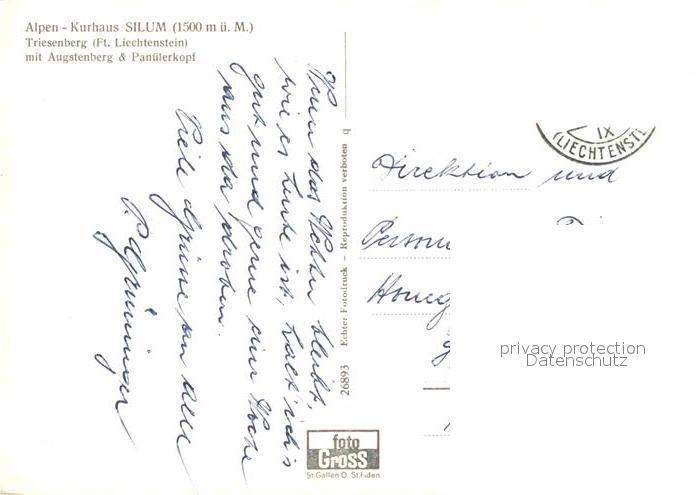 Alpen - Kurhaus SILUM (1500 m ü. M.)
Triesenberg (Ft. Liechtenstein)
mit Augstenberg & Panülerkopf
Wenn das Wetter bleibt,
wie es heute ist, halt ich's
gut und gerne eine Woche
aus da droben.
Viele Grüsse an alle
P. Grüninger
26893 Echter Fotodruck — Reproduktion verboten q
IX
(LIECHTENST
Direktion und
Person
Honeg
privacy protection
Datenschutz
foto
Gross
St Gallen O St. Fiden